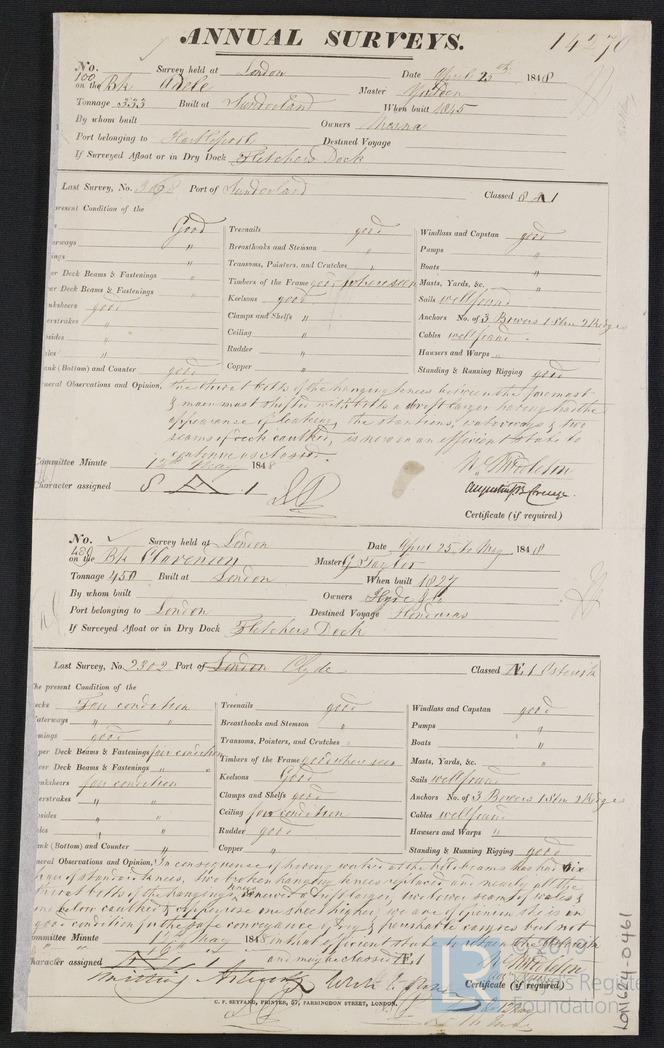 ANNUAL SURVEYS.
No. Survey held at London Date April 25th 1848
100 on the Bk Adele Master
Tonnage 333 Built at Sunderland When built 1845
By whom built Owners
Port belonging to Hartlepool Destined Voyage
If Surveyed Afloat or in Dry Dock Fletchers Dock
Last Survey, No. 368 Port of Sunderland Classed 8 A 1
present Condition of the
Good Treenails good Windlass and Capstan good
erways " Breasthooks and Stemson " Pumps "
ings " Transoms, Pointers, and Crutches " Boats "
er Deck Beams & Fastenings " Timbers of the Frame good where seen Masts, Yards, &c. "
er Deck Beams & Fastenings " Keelsons good Sails well found
nksheers good Clamps and Shelfs " Anchors No. of 3 Bowers 1 Stm 2 Kedges
erstrakes " Ceiling " Cables well found
sides " Rudder " Hawsers and Warps "
ales " Copper " Standing & Running Rigging good
ank (Bottom) and Counter good
eneral Observations and Opinion, the thwart bolts of the hanging knees between the foremast
& main mast shifted with bolts a drift larger having had the
appearance of leaking, the stantions, waterways & two
seams of deck caulked, is now in an efficient state to
continue as classed.
Committee Minute 12th May 1848
Character assigned 8 A 1
Certificate (if required)
No. Survey held at London Date April 25 to May 1848
on the Bk Clarendon Master G Taylor
Tonnage 450 Built at London When built 1827
By whom built Owners Hyde & Co
Port belonging to London Destined Voyage Honduras
If Surveyed Afloat or in Dry Dock Fletchers Dock
Last Survey, No. 2302 Port of London Clyde Classed Æ 1 Asterisk
he present Condition of the
ecks Fair condition Treenails good Windlass and Capstan good
Waterways " " Breasthooks and Stemson " Pumps "
mings good Transoms, Pointers, and Crutches " Boats "
per Deck Beams & Fastenings fair condition Timbers of the Frame good where seen Masts, Yards, &c. "
wer Deck Beams & Fastenings " Keelsons Good Sails well found
nksheers fair condition Clamps and Shelfs good Anchors No. of 3 Bowers 1 Stm 2 Kedges
erstrakes " " Ceiling fair condition Cables well found
sides " " Rudder good Hawsers and Warps "
ales " " Copper " Standing & Running Rigging good
ank (Bottom) and Counter "
neral Observations and Opinion, In consequence of having worked at the hold beams has had six
of standard knees, two broken hanging knees replaced and nearly all the
thwart bolts of the hanging knees renewed a drift larger, two lower seams of wales &
below caulked & coppered one sheet higher, we are of opinion she is in
good condition for the safe conveyance of dry & perishable cargoes but not
ommittee Minute 12th May 1848 in that efficient state to retain the Asterisk
and may be classed Æ 1
haracter assigned
Certificate (if required)
C. F. SEYFANG, PRINTER, 57, FARRINGDON STREET, LONDON.
LON624-0461
© 2019
Lloyd's Register
Foundation